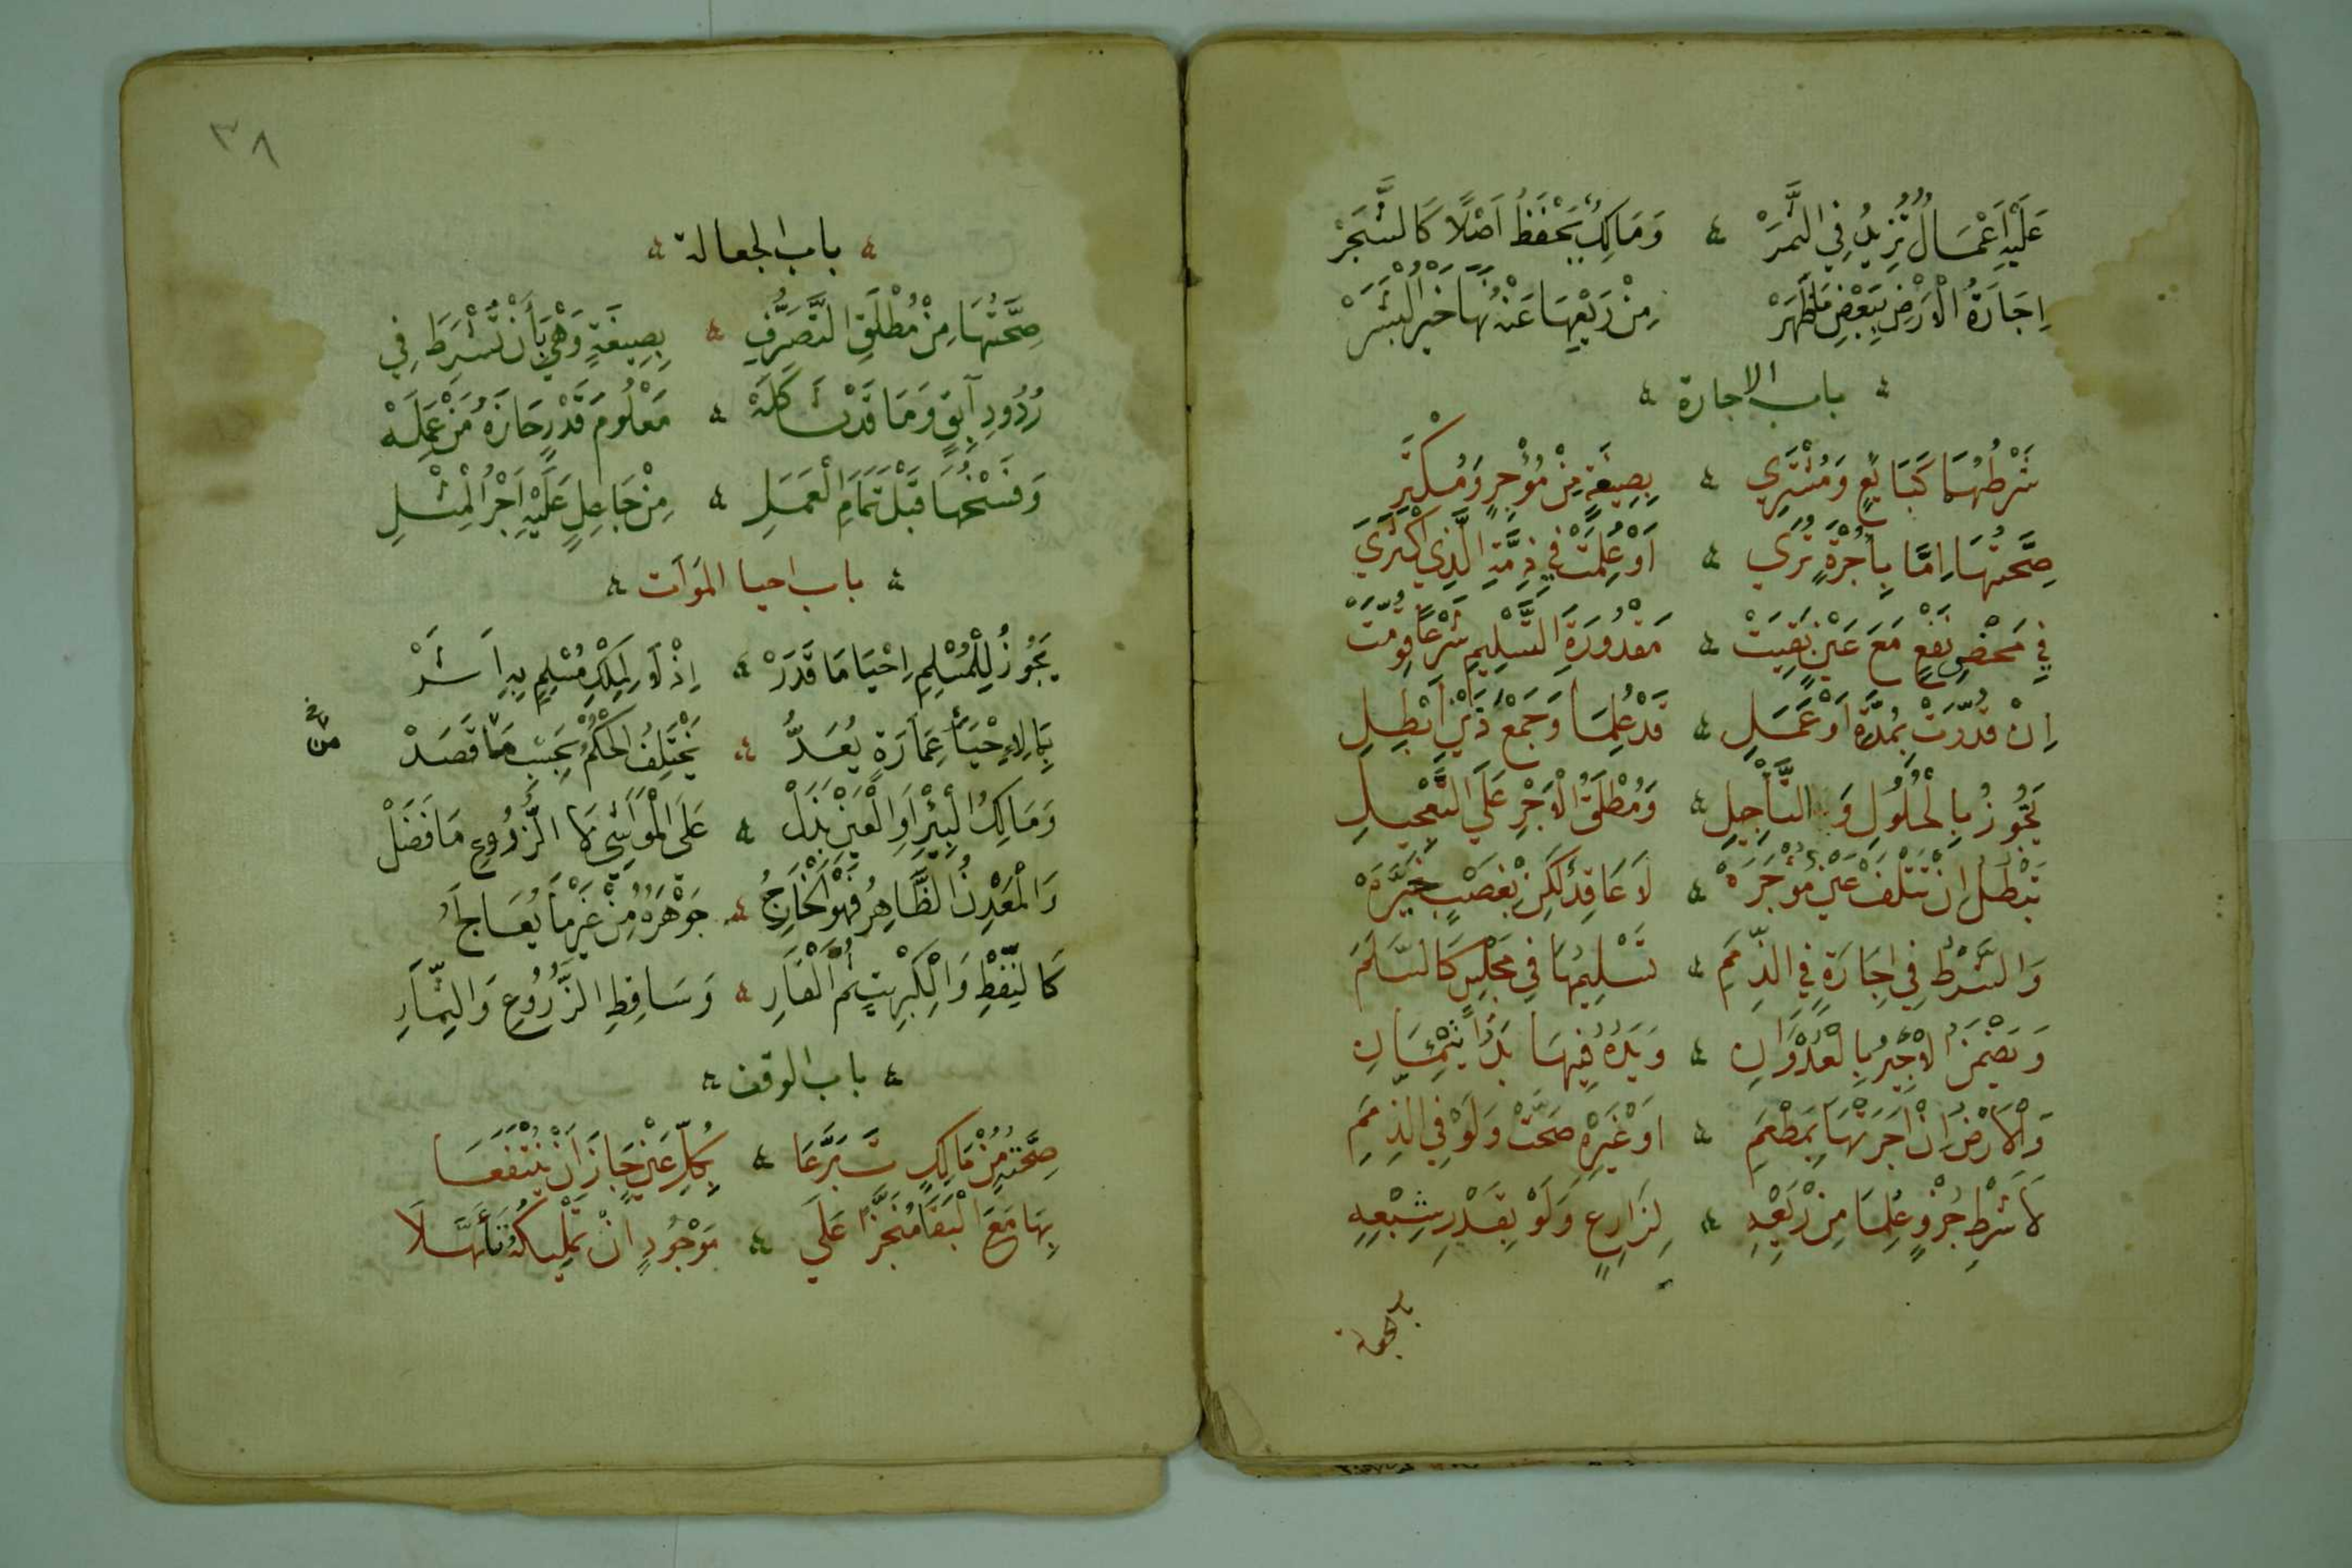 عَلَيْهِ اَعْمَالٌ تُزِيدُ فِي الثَّمَرْ ۞ وَمَالِكٌ يَحْفَظُ اَصْلًا كَالشَّجَرْ
اِجَارَةُ الْاَرْضِ بِبَعْضِ مَا ظَهَرْ مِنْ رَيْعِهَا عَنْهُ نَهَا خَيْرُ الْبَشَرْ
باب الاجارة
شَرْطُهُمَا كَبَايِعٍ وَمُشْتَرِي بِصِيغَةٍ مِنْ مُؤْجِرٍ وَمُكْتَرِ
صِحَّتُهَا اِمَّا بِاُجْرَةٍ تُرَي اَوْ عُلِمَتْ فِي ذِمَّةِ الَّذِي اكْتَرَي
فِي مَحْضِ نَفْعٍ مَعَ عَيْنٍ بَقِيَتْ مَقْدُورَةِ التَّسْلِيمِ شَرْعًا قُوِّمَتْ
اِنْ قُدِّرَتْ بِمُدَّةٍ اَوْ عَمَلِ قَدْ عُلِمَا وَجَمْعَ ذَيْنِ اَبْطِلِ
يَجُوزُ بِالْحُلُولِ وَالتَّأْجِيلِ وَمُطْلَقُ الْاَجْرِ عَلَي التَّعْجِيلِ
تَبْطُلُ اِنْ تَتْلَفْ عَيْنٌ مُؤْجَرَهْ لَا عَاقِدٌ لَكِنْ بِغَصْبٍ خَيَّرَهْ
وَالشَّرْطُ فِي اِجَارَةٍ فِي الذِّمَمِ تَسْلِيمُهَا فِي مَجْلِسٍ كَالسَّلَمِ
وَيَضْمَنُ الْاَجِيرُ بِالْعُدْوَانِ وَيَدُهُ فِيهَا يَدُ ائْتِمَانِ
وَالْاَرْضُ اِنْ اَجَرْتَهَا بِمَطْعَمِ اَوْ غَيْرِهِ صَحَّتْ وَلَوْ فِي الذِّمَمِ
لَا شَرْطِ جُزْءٍ عُلِمَا مِنْ رَيْعِهِ لِزَارِعٍ وَلَوْ بِقَدْرِ شِبْعِهِ
٣٨
باب الجعالة
صِحَّتُهَا مِنْ مُطْلَقِ التَّصَرُّفِ بِصِيغَةٍ وَهْيَ بِأَنْ تُشْرَطَ فِي
رُدُودِ آبِقٍ وَمَا قَدْ شَاكَلَهْ مَعْلُومَ قَدْرٍ حَازَهُ مَنْ عَمِلَهْ
وَفَسْخُهَا قَبْلَ تَمَامِ الْعَمَلِ مِنْ جَاعِلٍ عَلَيْهِ اَجْرُ الْمِثْلِ
باب احيا الموات
يَجُوزُ لِلْمُسْلِمِ اِحْيَا مَا قَدَرْ اِذْ لَا لِمِلْكِ مُسْلِمٍ بِهِ اَثَرْ
بِمَا لِاِحْيَاءِ عِمَارَةٍ يُعَدُّ يَخْتَلِفُ الْحُكْمُ بِحَسْبِ مَا قَصَدْ
من
وَمَالِكُ الْبِيْرِ اَوِ الْعَيْنِ بَذَلْ عَلَى الْمَوَاشِي لَا الزُّرُوعِ مَا فَضَلْ
وَالْمَعْدِنُ الظَّاهِرُ فَهْوَ الْخَارِجُ جَوْهَرُهُ مِنْ غَيْرِ مَا يُعَالَجُ
كَالنِّفْطِ وَالْكِبْرِيتِ ثُمَّ الْقَارِ وَسَاقِطِ الزُّرُوعِ وَالثِّمَارِ
باب الوقف
صِحَّتُهُ مِنْ مَالِكٍ تَبَرَّعَا بِكُلِّ عَيْنٍ جَازَ اَنْ يُنْتَفَعَا
بِهَا مَعَ الْبَقَا مُنَجَّزًا عَلَى مَوْجُودٍ اِنْ تَمْلِيكُهُ تَأَهَّلَا